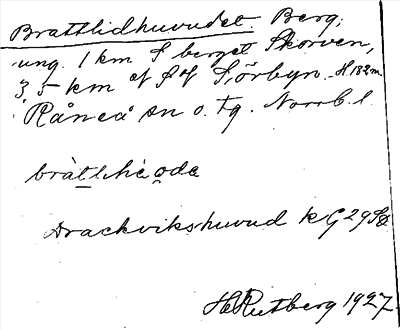 Brattlidhuvudet. Berg,
ung. 1 km S berget Skorven,
3,5 km af S of Sörbyn. H. 132 m
Råneå sn o. tg. Norrb. l.
Drackvikshuvud k G 29 SO
H Rutberg 1927.